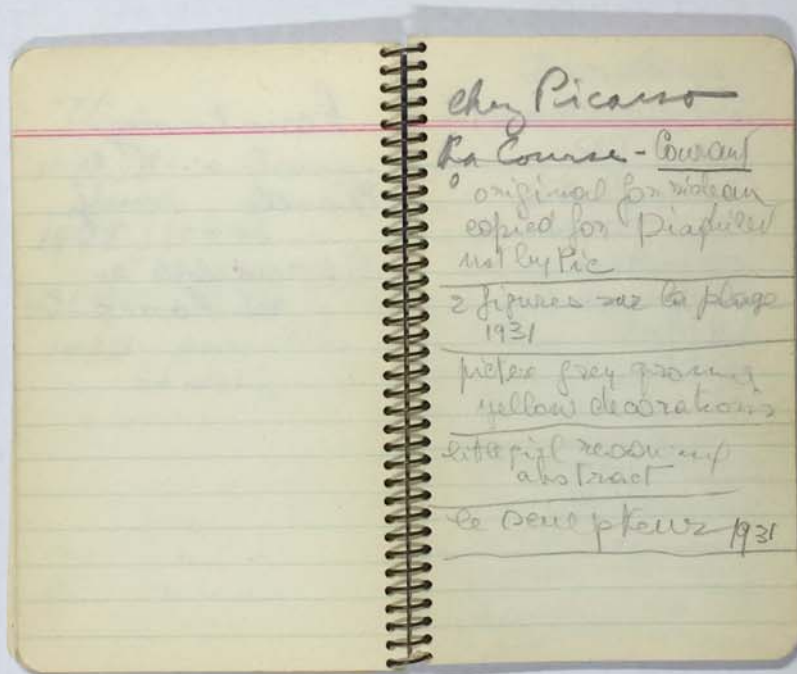 chez Picasso
La Course - Courant
° original for rideau
copied for Diaghilev
not by Pic
2 figures sur la plage
1931
grey ground
yellow decorations
little girl
abstract
le sculpteur 1931